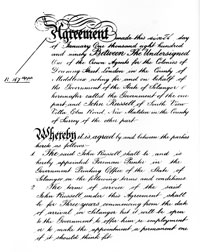 Agreement made this sixth day
of January One thousand eight hundred
and ninety Between The Undersigned
One of the Crown Agents for the Colonies of
Downing Street London in the County of
Middlesex acting for and on behalf of
the Government of the State of Selangor
hereinafter called the Government of the one
part and John Russell of South View
Villa New Malden in the County
of Surrey of the other part
Whereby it is agreed by and between the parties
hereto as follows
1 The said John Russell shall be and is
hereby appointed Foreman Printer in the
Government Printing Office of the State of
Selangor on the following terms and conditions
2 The term of service of the said
John Russell under this Agreement shall
be for Three years commencing from the date
of arrival in Selangor but it shall be open
to the Government to offer him re-employment
or to make the appointment a permanent one
if it should think fit